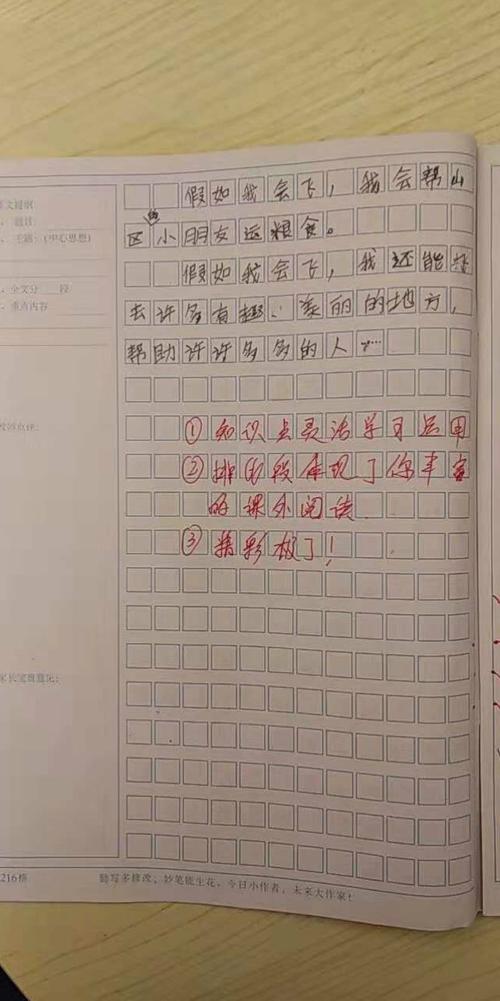 假如我会飞，我会帮山
区的小朋友运粮食。
假如我会飞，我还能
去许多有趣、美丽的地方，
帮助许许多多的人……
①知识点灵活学习运用
②排比段体现了你丰富
的课外阅读
③精彩极了！
主题：(中心思想)
全文分 段
重点内容
216格
勤写多修改，妙笔能生花，今日小作者，未来大作家！